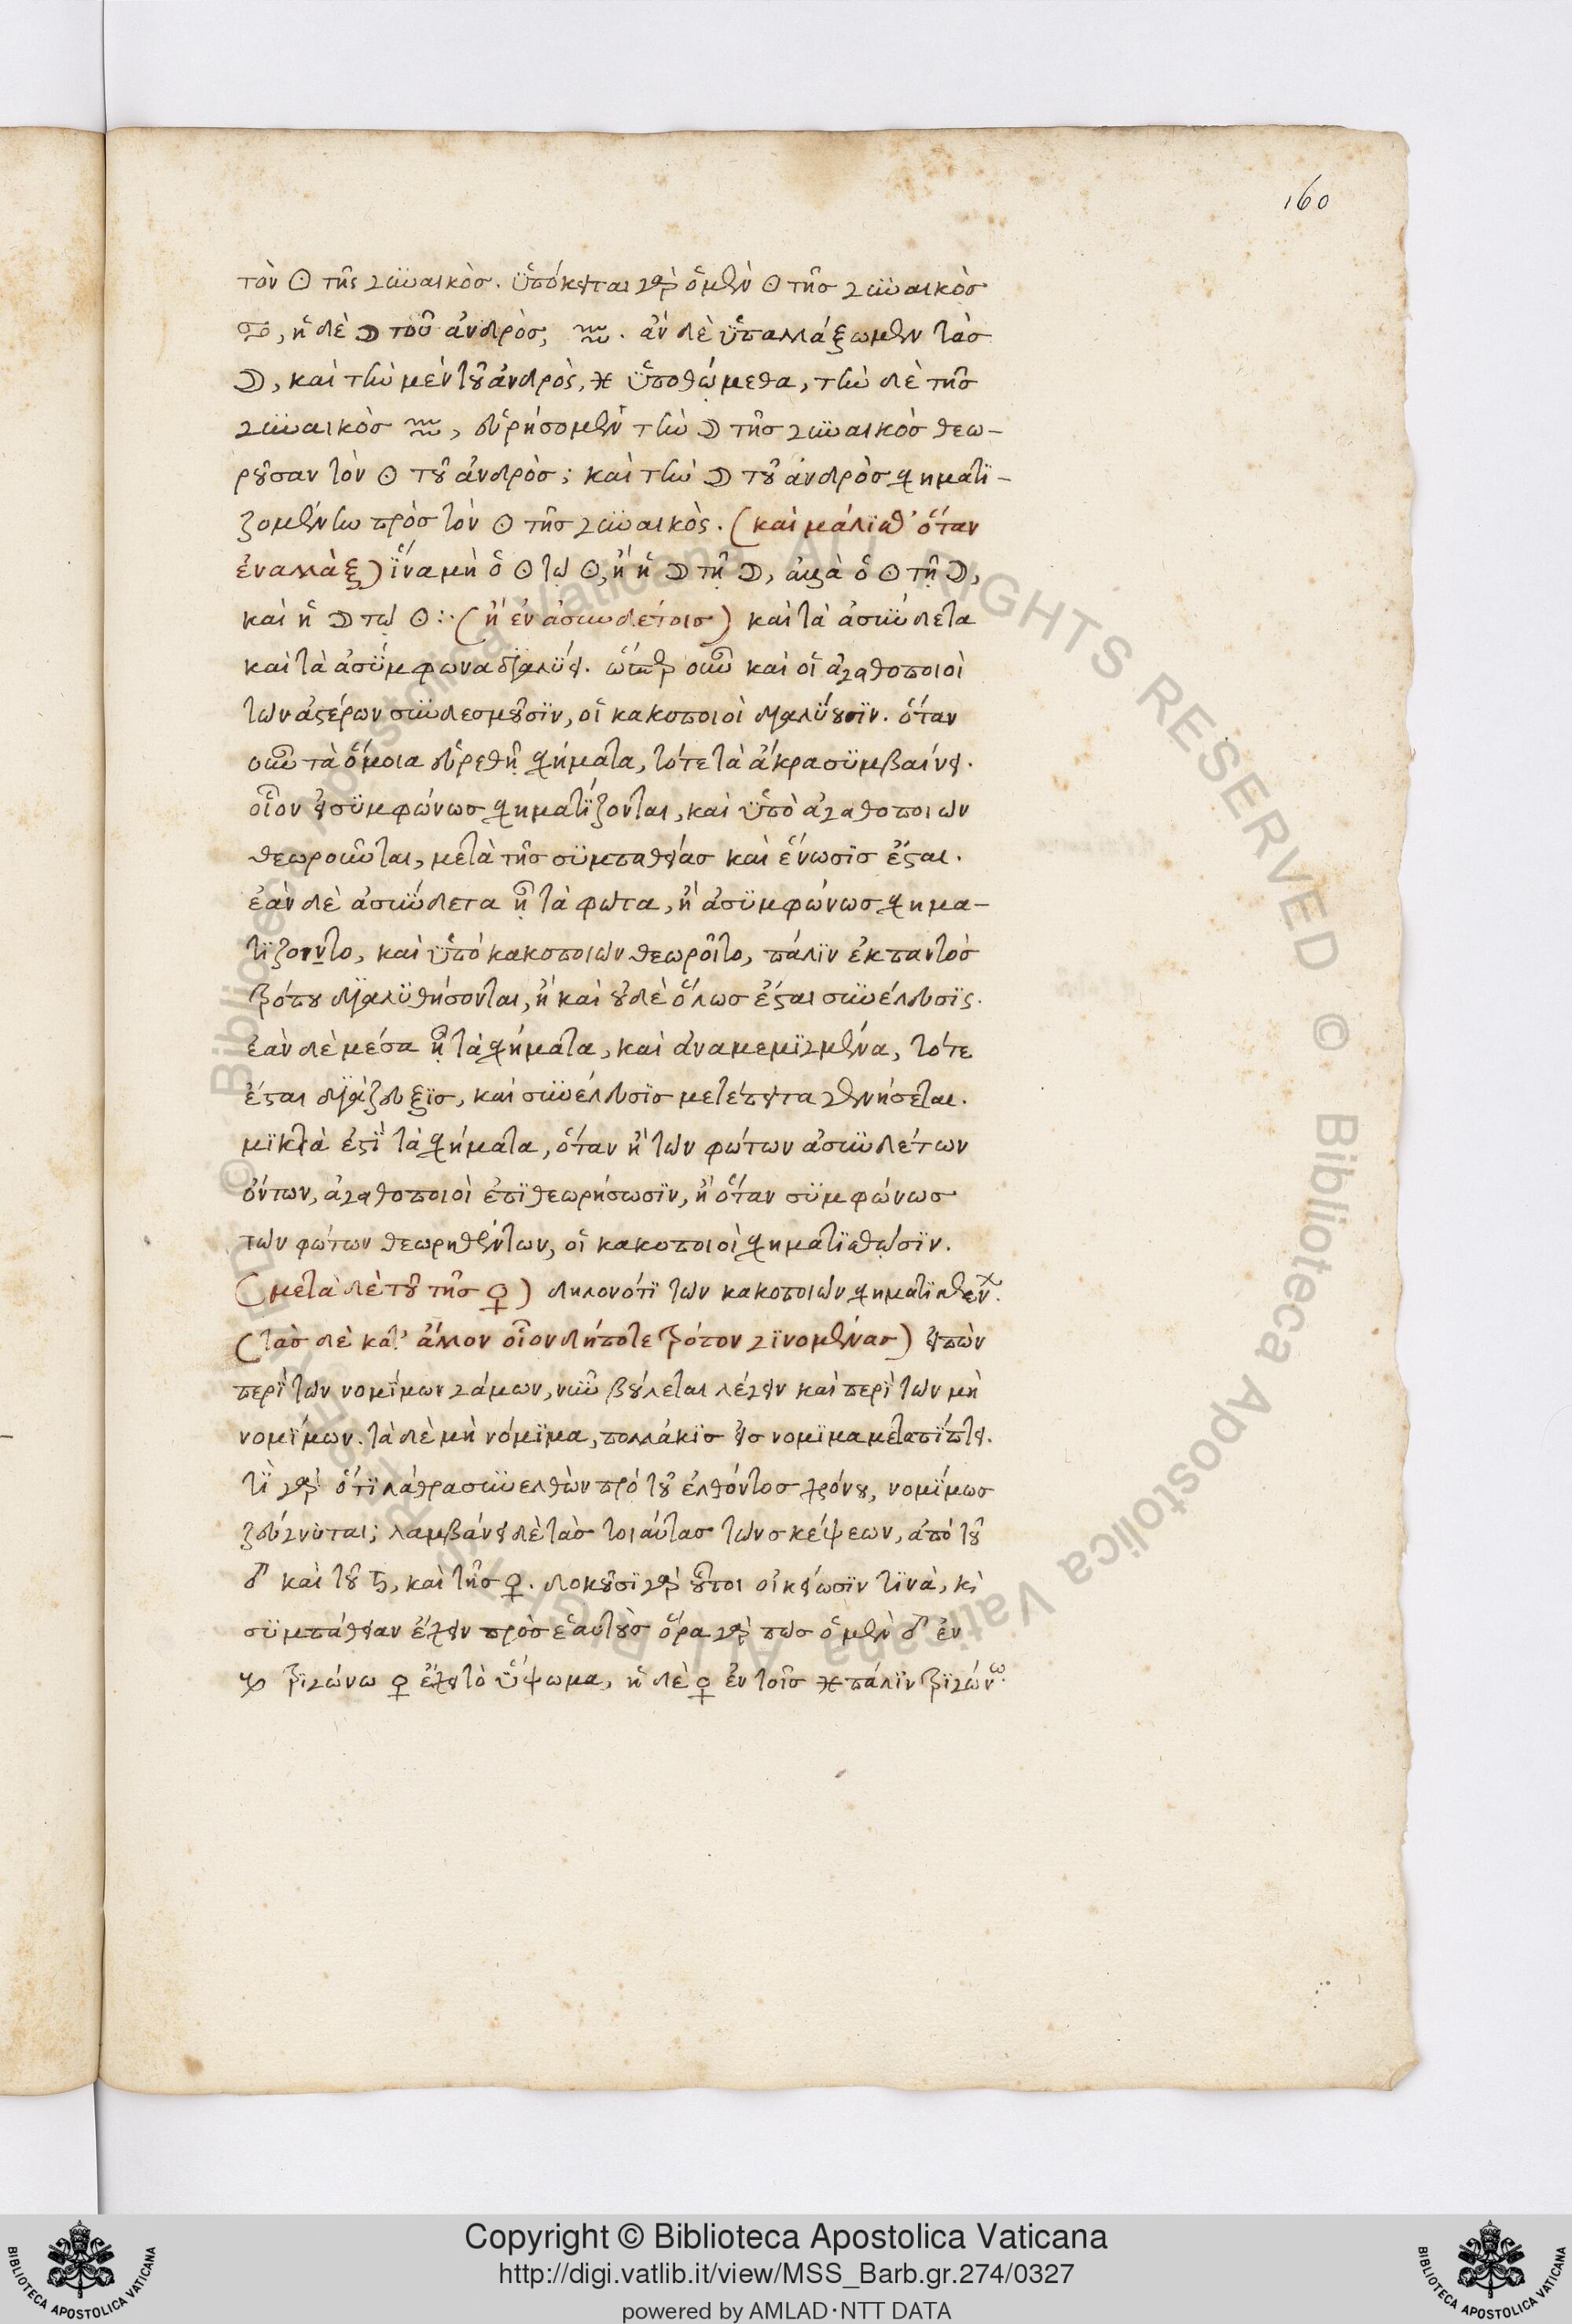 160
τὸν ☉ τῆς γυναικός. ὑπόκειται γὰρ ὁ μὲν ☉ τῆς γυναικὸς
♋, ἡ δὲ ☽ τοῦ ἀνδρὸς, ♒. ἂν δὲ ὑπαλλάξωμεν τὰς
☽, καὶ τὴν μὲν τοῦ ἀνδρὸς, ♓ ὑποθώμεθα, τὴν δὲ τῆς
γυναικὸς ♒, εὑρήσομεν τὴν ☽ τῆς γυναικὸς θεω-
ροῦσαν τὸν ☉ τοῦ ἀνδρός; καὶ τὴν ☽ τοῦ ἀνδρὸς σχηματι-
ζομένην πρὸς τὸν ☉ τῆς γυναικός. (καὶ μάλισθ' ὅταν
ἐναλλὰξ) ἵνα μὴ ὁ ☉ τῷ ☉, ἢ ἡ ☽ τῇ ☽, ἀλλὰ ὁ ☉ τῇ ☽,
καὶ ἡ ☽ τῷ ☉:· (ἢ ἐν ἀσυνδέτοις) καὶ τὰ ἀσύνδετα
καὶ τὰ ἀσύμφωνα διαλύει. ὥσπερ οὖν καὶ οἱ ἀγαθοποιοὶ
τῶν ἀστέρων συνδεσμοῦσιν, οἱ κακοποιοὶ διαλύουσιν. ὅταν
οὖν τὰ ὅμοια εὑρεθῇ σχήματα, τότε τὰ ἄκρα συμβαίνει.
οἷον εἰ συμφώνως σχηματίζονται, καὶ ὑπὸ ἀγαθοποιῶν
θεωροῦνται, μετὰ τῆς συμπαθείας καὶ ἕνωσις ἔσται.
ἐὰν δὲ ἀσύνδετα ᾖ τὰ φῶτα, ἢ ἀσυμφώνως σχημα-
τίζοιντο, καὶ ὑπὸ κακοποιῶν θεωροῖτο, πάλιν ἐκ παντὸς
τρόπου διαλυθήσονται, ἢ καὶ οὐδὲ ὅλως ἔσται συνέλευσις.
ἐὰν δὲ μέσα ᾖ τὰ σχήματα, καὶ ἀναμεμιγμένα, τότε
ἔσται διάζευξις, καὶ συνέλευσις μετέπειτα γενήσεται.
μικτὰ ἐστὶ τὰ σχήματα, ὅταν ἢ τῶν φώτων ἀσυνδέτων
ὄντων, ἀγαθοποιοὶ ἐπιθεωρήσωσιν, ἢ ὅταν συμφώνως
τῶν φώτων θεωρηθέντων, οἱ κακοποιοὶ σχηματισθῶσιν.
(μετὰ δὲ τοῦ τῆς ♀) δηλονότι τῶν κακοποιῶν
(τὰς δὲ κατ' ἄλλον οἱονδήποτε τρόπον γινομένας) εἰπὼν
περὶ τῶν νομίμων γάμων, νῦν βούλεται λέγειν καὶ περὶ τῶν μὴ
νομίμων. τὰ δὲ μὴ νόμιμα, πολλάκις εἰς νομιμα μεταπίπτει.
τί γὰρ ὅτι λάθρα συνελθὼν πρὸ τοῦ ἐλθόντος χρόνου, νομίμως
ζεύγνυται; λαμβάνει δὲ τὰς τοιαύτας τῶν σκέψεων, ἀπὸ τοῦ
♂ καὶ τοῦ ♄, καὶ τῆς ♀. δοκοῦσι γὰρ οὗτοι οἰκείωσιν τινὰ, κὶ
συμπάθειαν ἔχειν πρὸς ἑαυτοὺς ὅρα γὰρ πῶς ὁ μὲν ♂ ἐν
♑ τριγώνω ♀ ἔχει τὸ ὕψωμα, ἡ δὲ ♀ ἐν τοῖς ♓ πάλιν τριγώνω
© Biblioteca Apostolica Vaticana ALL RIGHTS RESERVED
Copyright © Biblioteca Apostolica Vaticana
http://digi.vatlib.it/view/MSS_Barb.gr.274/0327
powered by AMLAD·NTT DATA
BIBLIOTECA APOSTOLICA VATICANA
BIBLIOTECA APOSTOLICA VATICANA